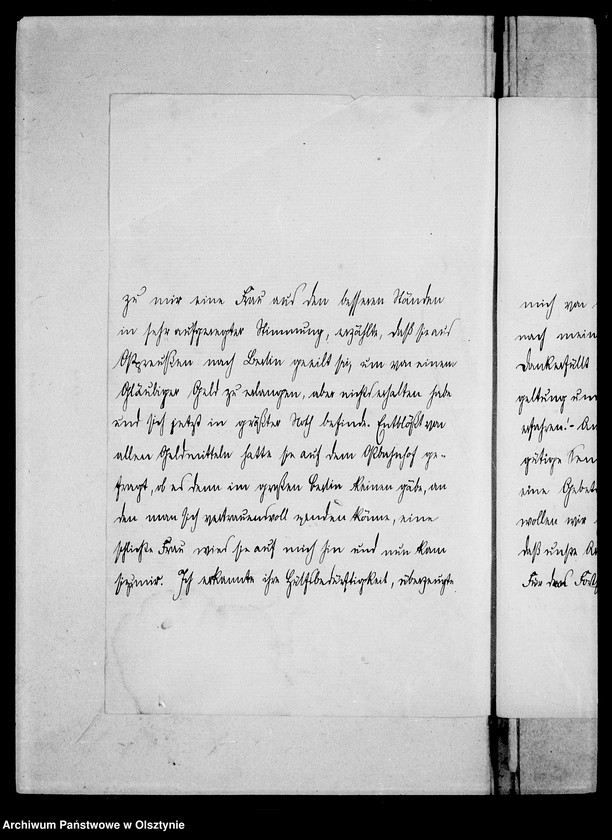 zu mir eine Frau aus den besseren Ständen
in sehr aufgeregter Stimmung, erzählte, daß sie aus
Ostpreußen nach Berlin geeilt sei, um von einem
Gläubiger Geld zu erlangen, aber nichts erhalten habe
und sich jetzt in größter Noth befinde. Entblößt von
allen Geldmitteln hatte sie auf dem Ostbahnhof ge-
fragt, ob es denn im großen Berlin keinen gäbe, an
den man sich vertrauensvoll wenden könne, eine
schlichte Frau wies sie auf mich hin und nun kam
sie zu mir. Ich erkannte ihre Hülfsbedürftigkeit, überzeugte
mich von
nach mein
Dankerfüllt
geltung um
erfahren! - An
gütige Sen
eine Gebet
wollen wir
daß unsre
Für das
Archiwum Państwowe w Olsztynie